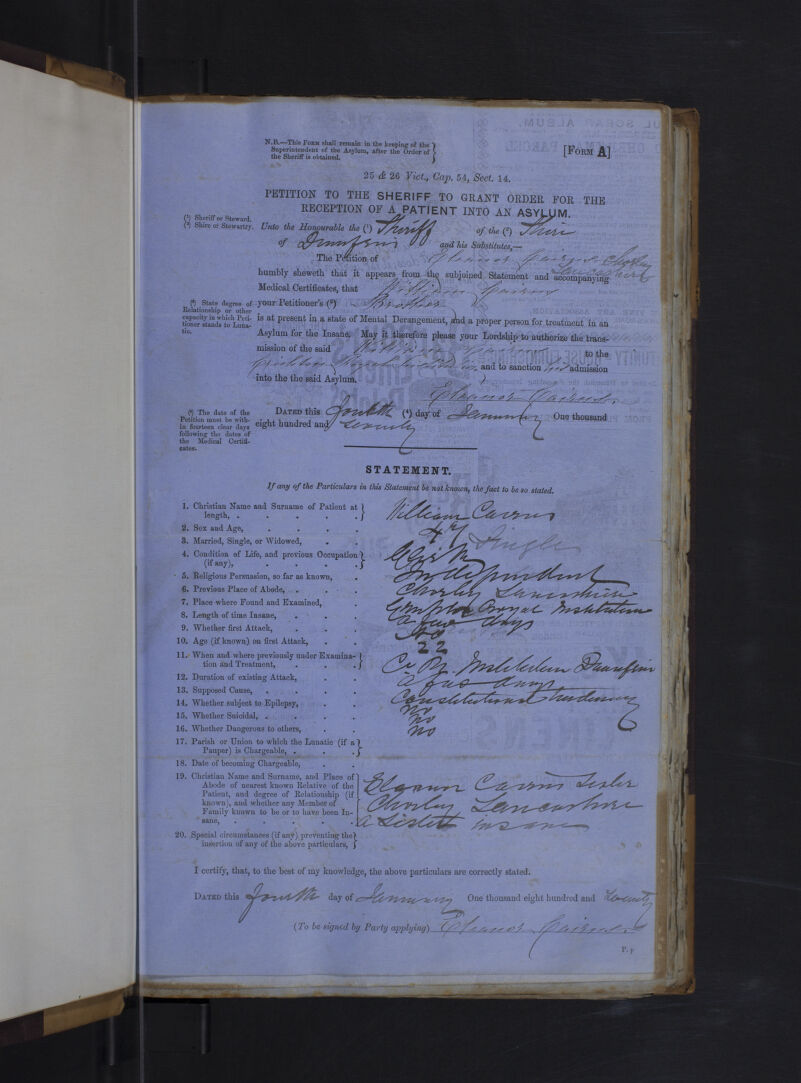 N.B.—This Form shall remain in the keeping of the
Superintendent of the Asylum, after the Order of
the Sheriff is obtained.
[Form A]
25 & 26 Vict., Cap. 54, Sect. 14.
PETITION TO THE SHERIFF TO GRANT ORDER FOR THE
RECEPTION OF A PATIENT INTO AN ASYLUM.
(¹) Sheriff or Steward.
(²) Shire or Stewartry.
Unto the Honourable the (¹) Sheriff of the (²) Shire
of Dumfries and his Substitutes,—
The Petition of Eleanor Cairns Chorley
Lancashire
humbly sheweth that it appears from the subjoined Statement and accompanying
Medical Certificates, that William Cairns
(³) State degree of
Relationship or other
capacity in which Peti-
tioner stands to Luna-
tic.
your Petitioner's (³) Brother
is at present in a state of Mental Derangement, and a proper person for treatment in an
Asylum for the Insane. May it therefore please your Lordship to authorize the trans-
mission of the said William Cairns to the
Crichton Royal Institution, and to sanction his admission
into the the said Asylum.
Eleanor Cairns
(⁴) The date of the
Petition must be with-
in fourteen clear days
following the dates of
the Medical Certifi-
cates.
Dated this fourth (⁴) day of January One thousand
eight hundred and seventy
STATEMENT.
If any of the Particulars in this Statement be not known, the fact to be so stated.
1. Christian Name and Surname of Patient at
length, William Cairns
2. Sex and Age, 47
3. Married, Single, or Widowed, Single
4. Condition of Life, and previous Occupation
(if any), Clerk
5. Religious Persuasion, so far as known, Independent
6. Previous Place of Abode, Chorley Lancashire
7. Place where Found and Examined, Crichton Royal Institution
8. Length of time Insane, a few days
9. Whether first Attack, No
10. Age (if known) on first Attack, 22
11. When and where previously under Examina-
tion and Treatment, Cr. R. Institution Dumfries
12. Duration of existing Attack, a few days
13. Supposed Cause, Constitutional tendency
14. Whether subject to Epilepsy, No
15. Whether Suicidal, No
16. Whether Dangerous to others, No
17. Parish or Union to which the Lunatic (if a
Pauper) is Chargeable,
18. Date of becoming Chargeable,
19. Christian Name and Surname, and Place of
Abode of nearest known Relative of the
Patient, and degree of Relationship (if
known), and whether any Member of
Family known to be or to have been In-
sane,
Eleanor Cairns Sister
Chorley Lancashire
a Sister insane
20. Special circumstances (if any) preventing the
insertion of any of the above particulars,
I certify, that, to the best of my knowledge, the above particulars are correctly stated.
Dated this fourth day of January One thousand eight hundred and seventy
(To be signed by Party applying) Eleanor Cairns